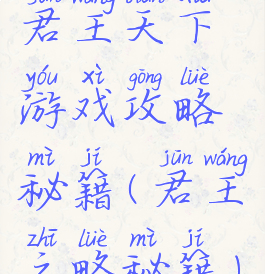 jūn wáng tiān xià
君王天下
yóu xì gōng lüè
游戏攻略
mì jí jūn wáng
秘籍(君王
zhī lüè mì jí
之略秘籍)